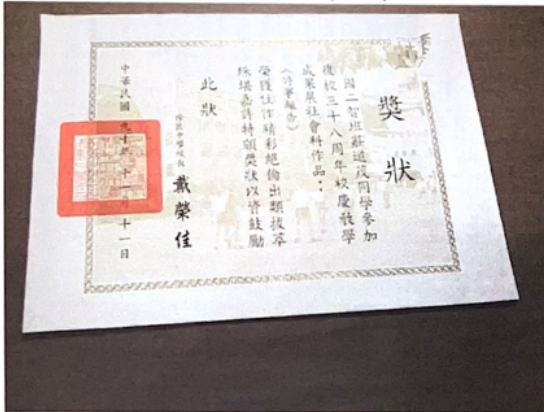 獎狀
國二智班莊迺茂同學參加
復校三十八周年校慶教學
成果展社會科作品：
《時事報告》
榮獲佳作精彩絕倫出類拔萃
殊堪嘉許特頒獎狀以資鼓勵
此狀
戴榮佳
中華民國九十年十一月十一日